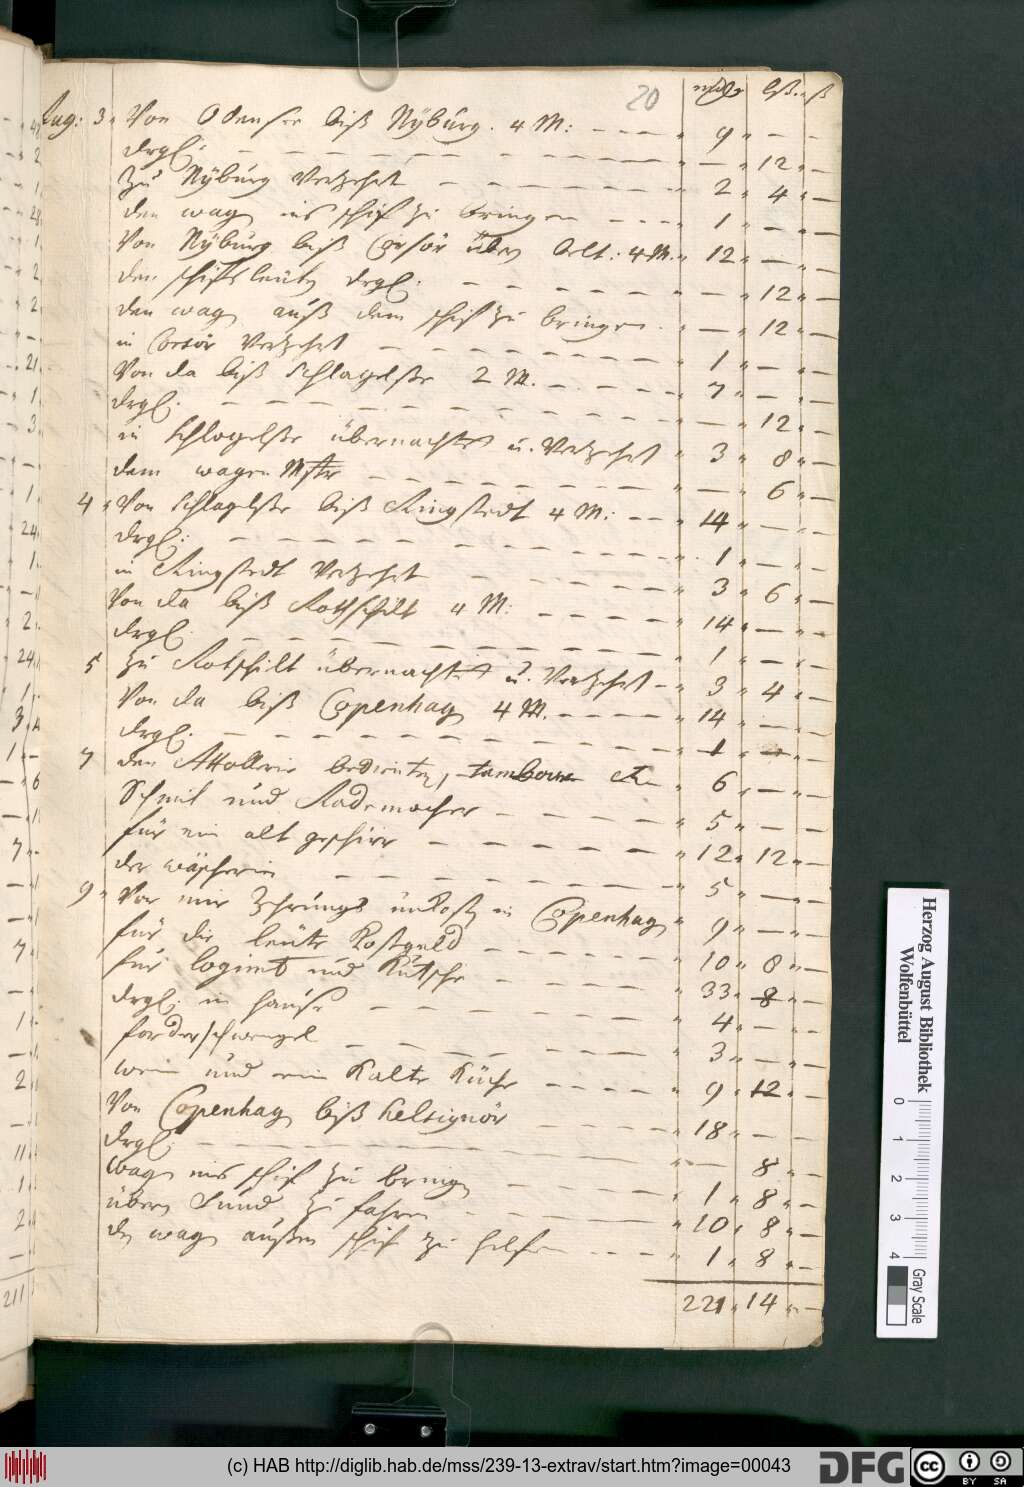 20
Aug: 3. Von Odensee biß Nÿburg. 4 M: — 9 — —
drgl: — 12 —
Zu Nÿburg Verzehrt — 2 4 —
den wag ins schif zu bringen — 1 — —
Von Nÿburg biß Corsör über belt: 4 M. 12 — —
den schifsleuten drgl. — 12 —
den wag auß dem schif zu bringen. — 12 —
in Corsör Verzehrt — 1 — —
Von da biß Schlagelse 2 M. — 7 — —
drgl. — 12 —
in Schlagelse übernachtet u. Verzehrt 3 8 —
dem wagen Mstr — 6 —
4 Von Schlagelse biß Ringstedt 4 M: — 14 — —
drgl: — 1 — —
in Ringstedt Verzehrt — 3 6 —
Von da biß Rothschilt 4 M: — 14 — —
drgl. — 1 — —
5 Zu Rotschilt übernachtet u. Verzehrt — 3 4 —
Von da biß Copenhag 4 M. — 14 — —
drgl. — 1 — —
7 den bedienten, tambour — 6 — —
Schmit und Rademacher — 5 — —
für ein alt geschirr — 12 12 —
der wäscherin — 5 — —
9 Vor mir Zehrungs unkost in Copenhag 9 — —
für die leute Kostgeld — 10 8 —
für logiment und Kutsche — 33 8 —
drgl. im hause — 4 — —
forderschwengel — 3 — —
wein und ein Kalte Küche — 9 12 —
Von Copenhag biß Helsignör — 18 — —
drgl: — 8 —
wag ins schif zu bringen — 1 8 —
übern Sund zu fahren — 10 8 —
den wag außen schif zu helfen — 1 8 —
221 14 —
Herzog August Bibliothek
Wolfenbüttel
0 1 2 3 4
Gray Scale
(c) HAB http://diglib.hab.de/mss/239-13-extrav/start.htm?image=00043
DFG
cc
BY SA